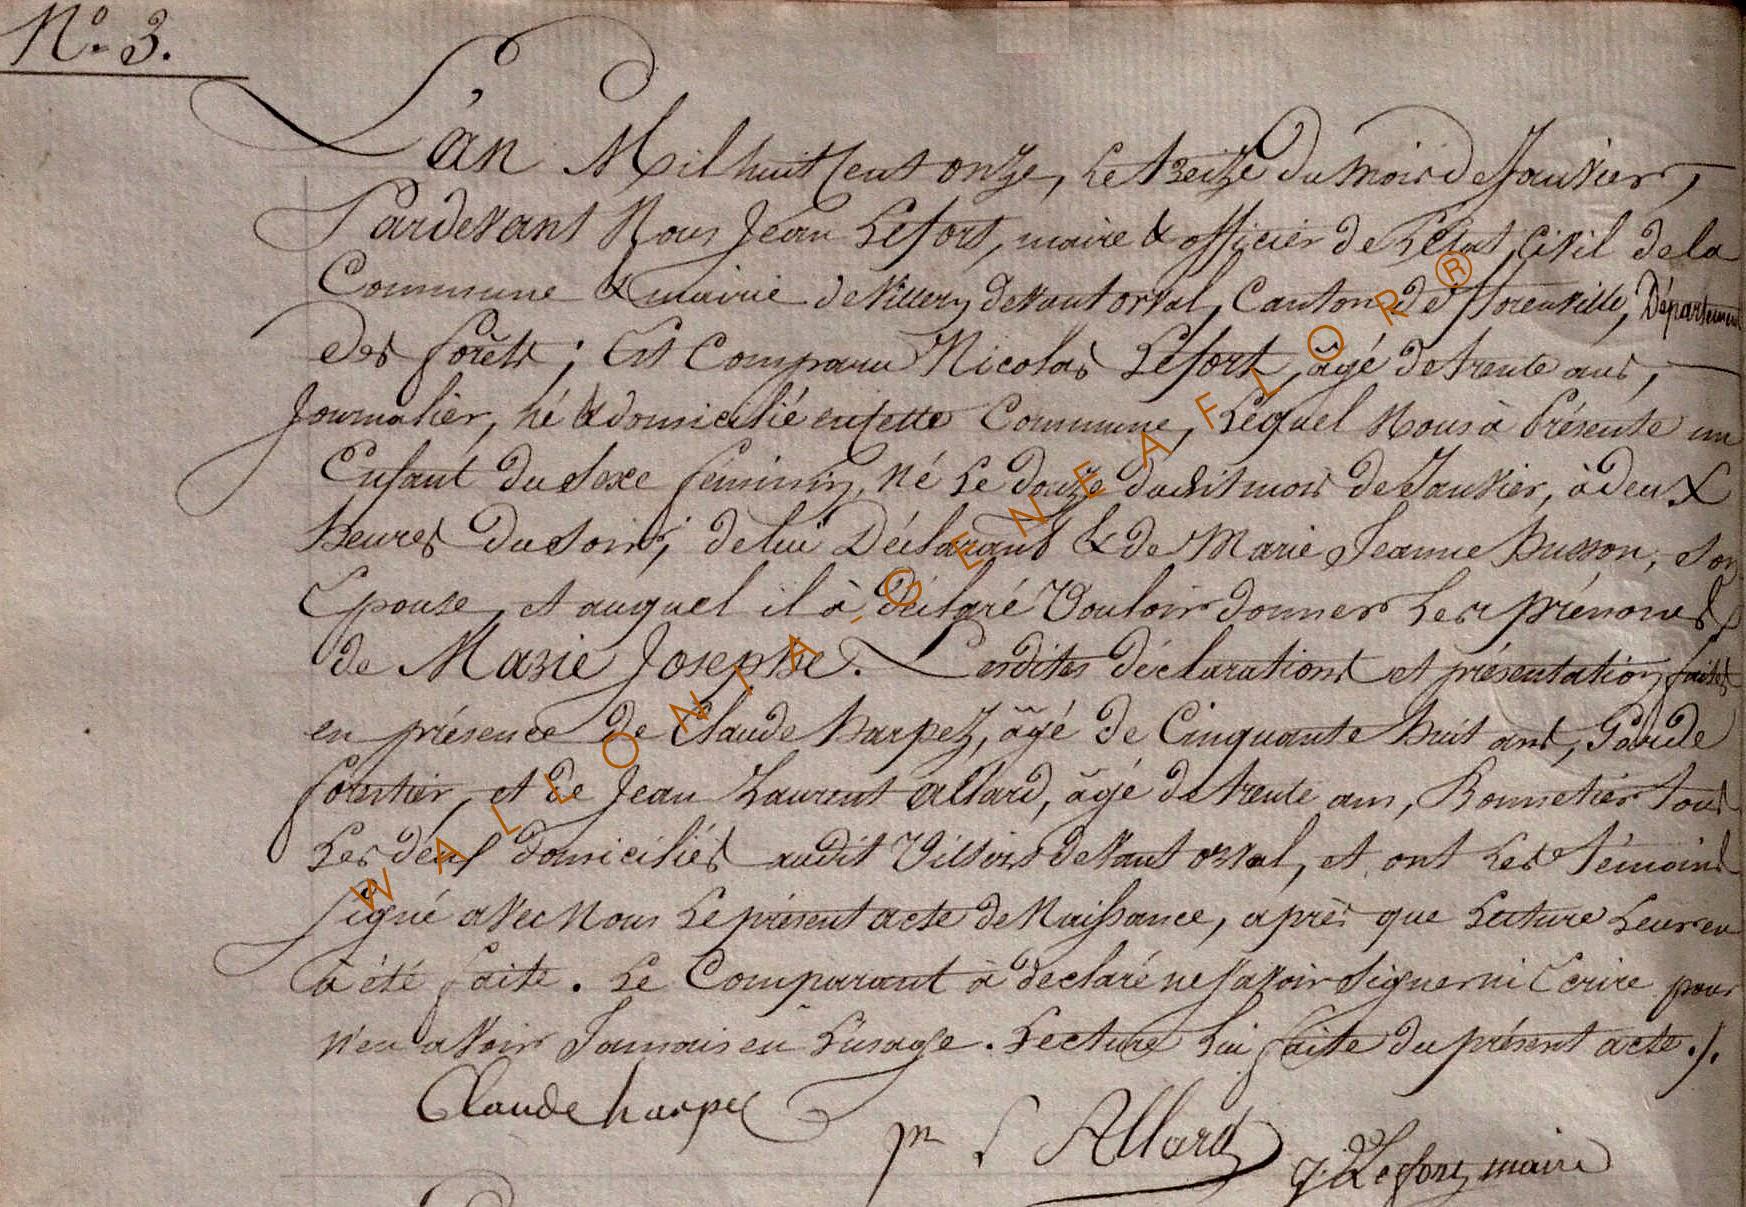 N.º 3.
L'an Mil huit Cent onze, le treize du mois de Janvier,
Pardevant Nous Jean Lefort, maire & officier de L'état Civil de la
Commune & mairie de Villers devant orval, Canton de florenville, Département
des forêts ; Est Comparu Nicolas Lefort, âgé de trente ans,
Journalier, né & domicilié en Cette Commune, Lequel Nous à Présenté un
Enfant du Sexe feminin, Né Le douze dudit mois de Janvier, à deux
heures du Soir, de lui Déclarant & de Marie Jeanne husson, Son
Epouse, et auquel il à déclaré Vouloir donner Les prénoms
de Marie Josephe. Lesdites déclarations et présentation faites
en présence de Claude harpez, âgé de Cinquante huit ans, Garde
forestier, et de Jean Laurent allard, âgé de trente ans, Bonnetier tous
Les deux domiciliés audit Villers devant orval, et ont Les témoins
signé avec Nous Le présent acte de Naissance, après que Lecture Leur en
à été faite. Le Comparant à declaré ne Savoir Signer ni Ecrire pour
n'en avoir Jamais eu L'usage. Lecture Lui faite du présent acte ./.
Claude harpez
jn L Allard
J. Lefort, maire
WALLONIA-GENEAFLOR®